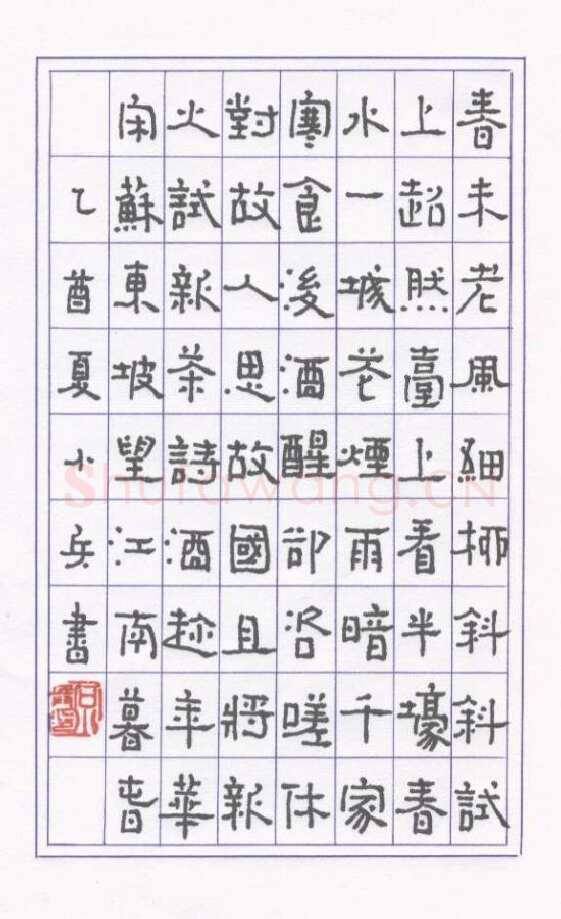 春未老風細柳斜斜試
上超然臺上看半壕春
水一城花煙雨暗千家
寒食後酒醒卻咨嗟休
對故人思故國且將新
火試新茶詩酒趁年華
蘇東坡望江南暮旾
乙酉夏小兵書
Shufawang.CN